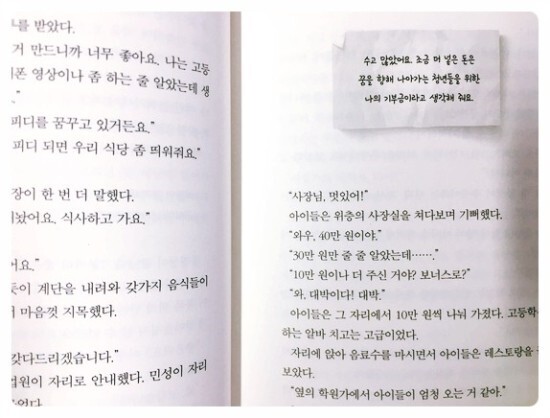 를 받았다.
거 만드니까 너무 좋아요. 나는 고등
폰 영상이나 좀 하는 줄 알았는데 생
”
피디를 꿈꾸고 있거든요.”
피디 되면 우리 식당 좀 띄워줘요.”
장이 한 번 더 말했다.
놨어요. 식사하고 가요.”
어요.”
이 계단을 내려와 갖가지 음식들이
마음껏 지목했다.
갖다드리겠습니다.”
원이 자리로 안내했다. 민성이 자리
었다.
수고 많았어요. 조금 더 넣은 돈은
꿈을 향해 나아가는 청년들을 위한
나의 기부금이라고 생각해 줘요.
“사장님, 멋있어!”
아이들은 위층의 사장실을 쳐다보며 기뻐했다.
“와우, 40만 원이야.”
“30만 원만 줄 줄 알았는데…….”
“10만 원이나 더 주신 거야? 보너스로?”
“와, 대박이다! 대박.”
아이들은 그 자리에서 10만 원씩 나눠 가졌다. 고등학
하는 알바 치고는 고급이었다.
자리에 앉아 음료수를 마시면서 아이들은 레스토랑을
보았다.
“옆의 학원가에서 아이들이 엄청 오는 거 같아.”